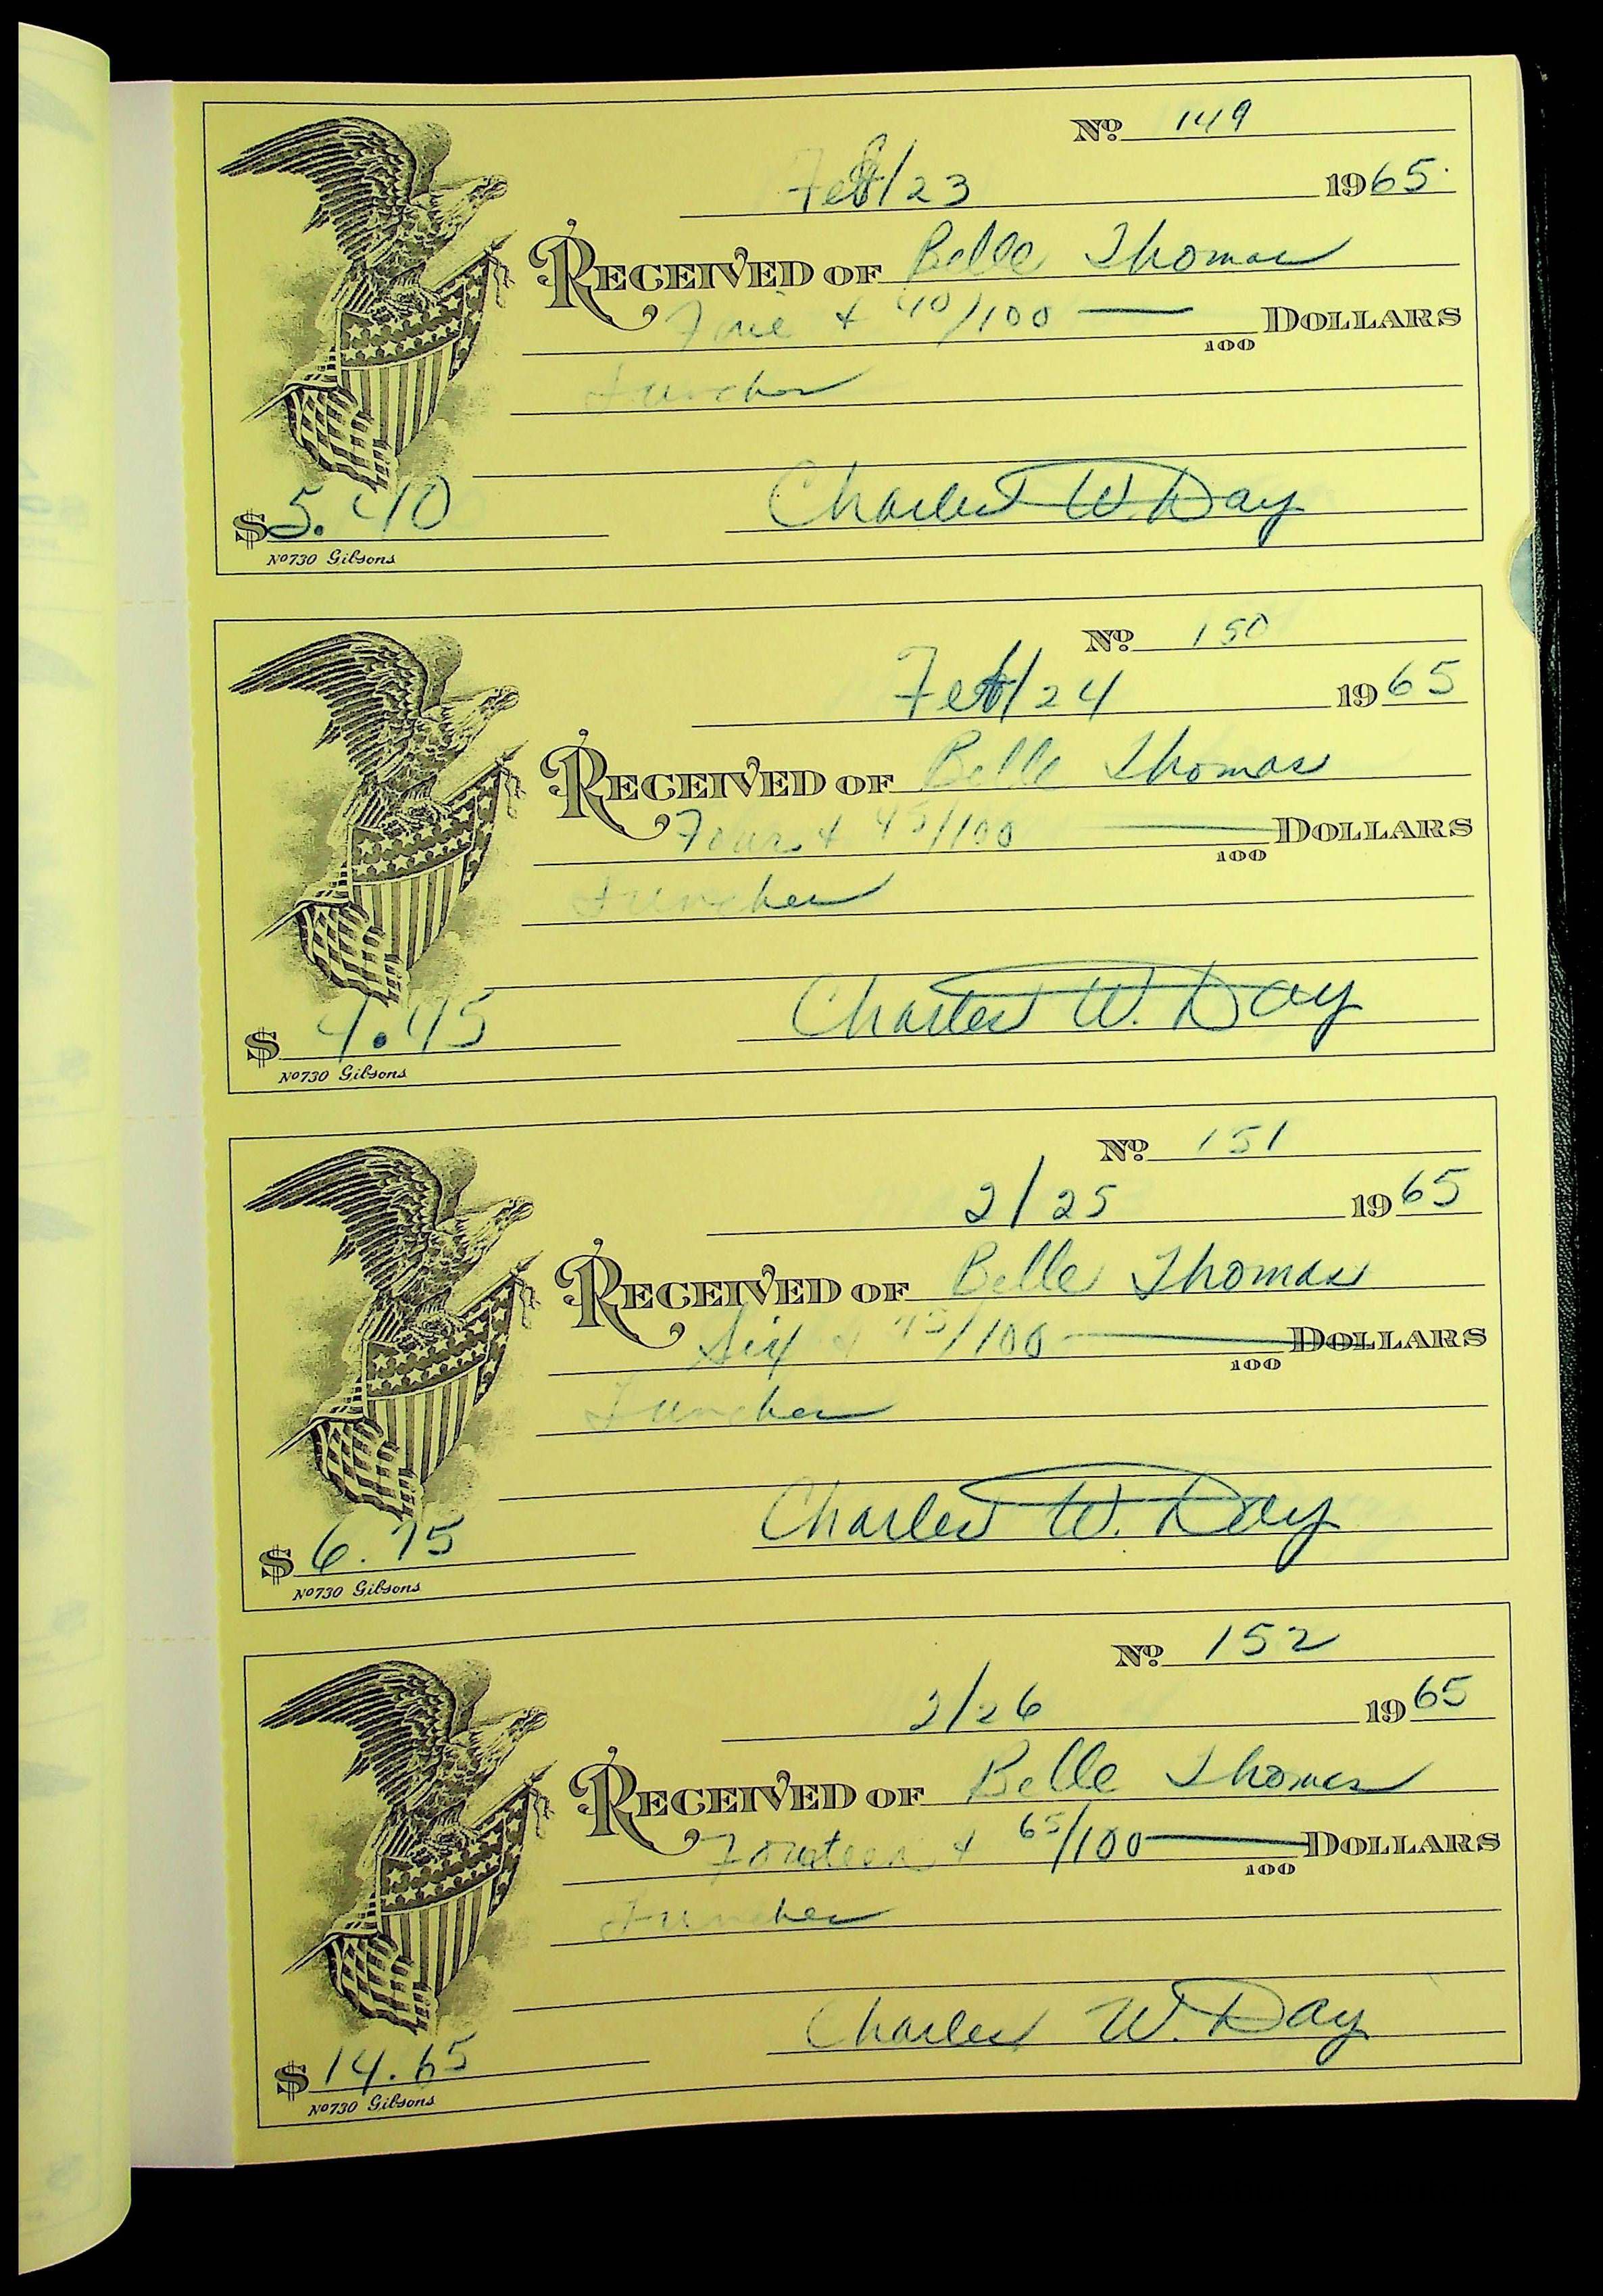 Nº 149
Feb/23 1965
RECEIVED OF Belle Thomas
Five + 40/100 — 100 DOLLARS
Lunches
$5.40 Charles W. Day
Nº730 Gibsons
Nº 150
Feb/24 1965
RECEIVED OF Belle Thomas
Four + 45/100 — 100 DOLLARS
Lunches
$4.45 Charles W. Day
Nº730 Gibsons
Nº 151
2/25 1965
RECEIVED OF Belle Thomas
Six + /100 — 100 DOLLARS
Lunches
$6.75 Charles W. Day
Nº730 Gibsons
Nº 152
2/26 1965
RECEIVED OF Belle Thomas
Fourteen + 65/100 — 100 DOLLARS
Lunches
$14.65 Charles W. Day
Nº730 Gibsons